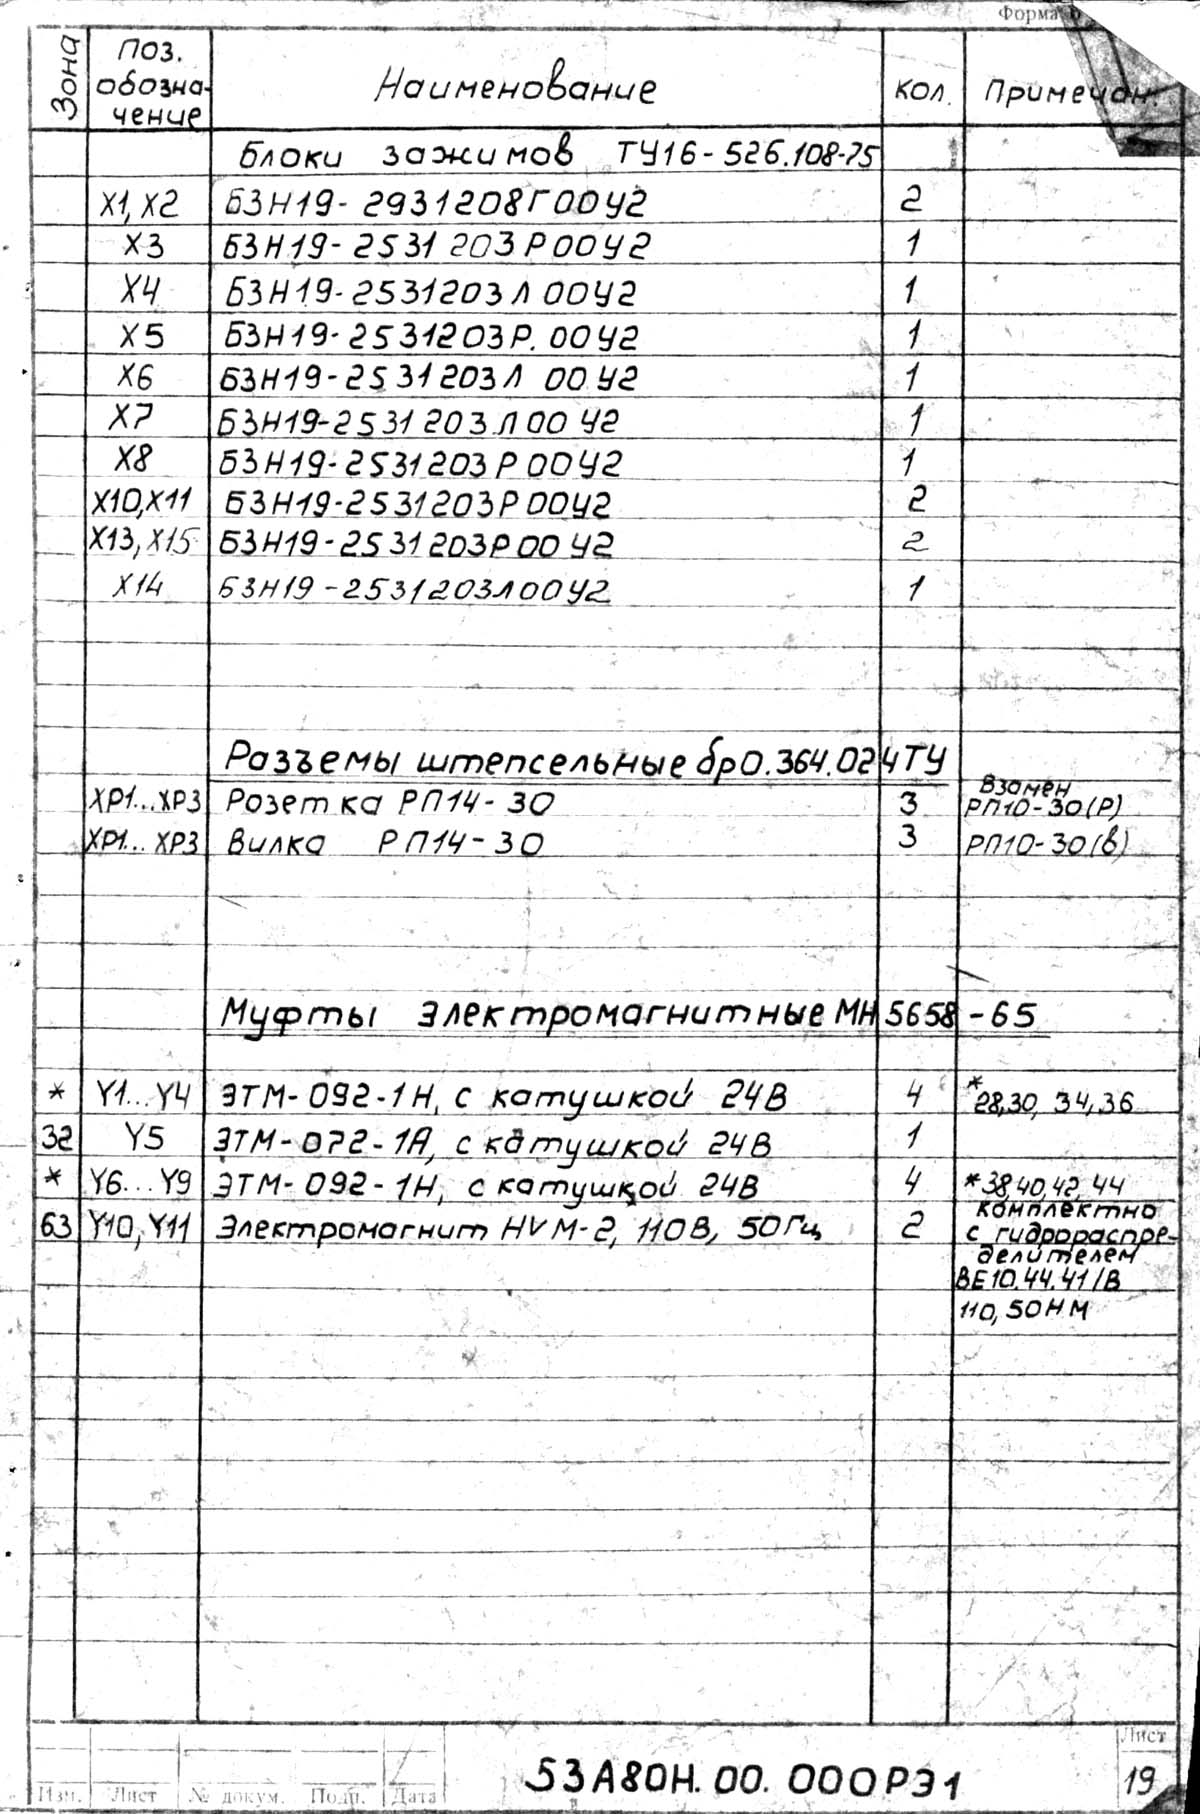 Форма 6
Зона Поз. обозна- чение Наименование Кол. Примечан.
Блоки зажимов ТУ16-526.108-75
X1, X2 БЗН19-2931208Г00У2 2
X3 БЗН19-2531203Р00У2 1
X4 БЗН19-2531203Л00У2 1
X5 БЗН19-2531203Р.00У2 1
X6 БЗН19-2531203Л 00У2 1
X7 БЗН19-2531203Л00У2 1
X8 БЗН19-2531203Р00У2 1
X10,X11 БЗН19-2531203Р00У2 2
X13,X15 БЗН19-2531203Р00У2 2
X14 БЗН19-2531203Л00У2 1
Разъемы штепсельные бр0.364.024ТУ
XP1...XP3 Розетка РП14-30 3 Взамен РП10-30(Р)
XP1...XP3 Вилка РП14-30 3 РП10-30(в)
Муфты электромагнитные МН5658-65
* Y1...Y4 ЭТМ-092-1Н, с катушкой 24В 4 *28,30, 34,36
32 Y5 ЭТМ-072-1А, с катушкой 24В 1
* Y6...Y9 ЭТМ-092-1Н, с катушкой 24В 4 *38,40,42,44
63 Y10, Y11 Электромагнит HVM-2, 110В, 50Гц 2 комплектно
с гидрораспре-
делителем
ВЕ10.44.41/В
110, 50НМ
Изм. Лист № докум. Подп. Дата
53А80Н.00.000РЭ1
Лист
19